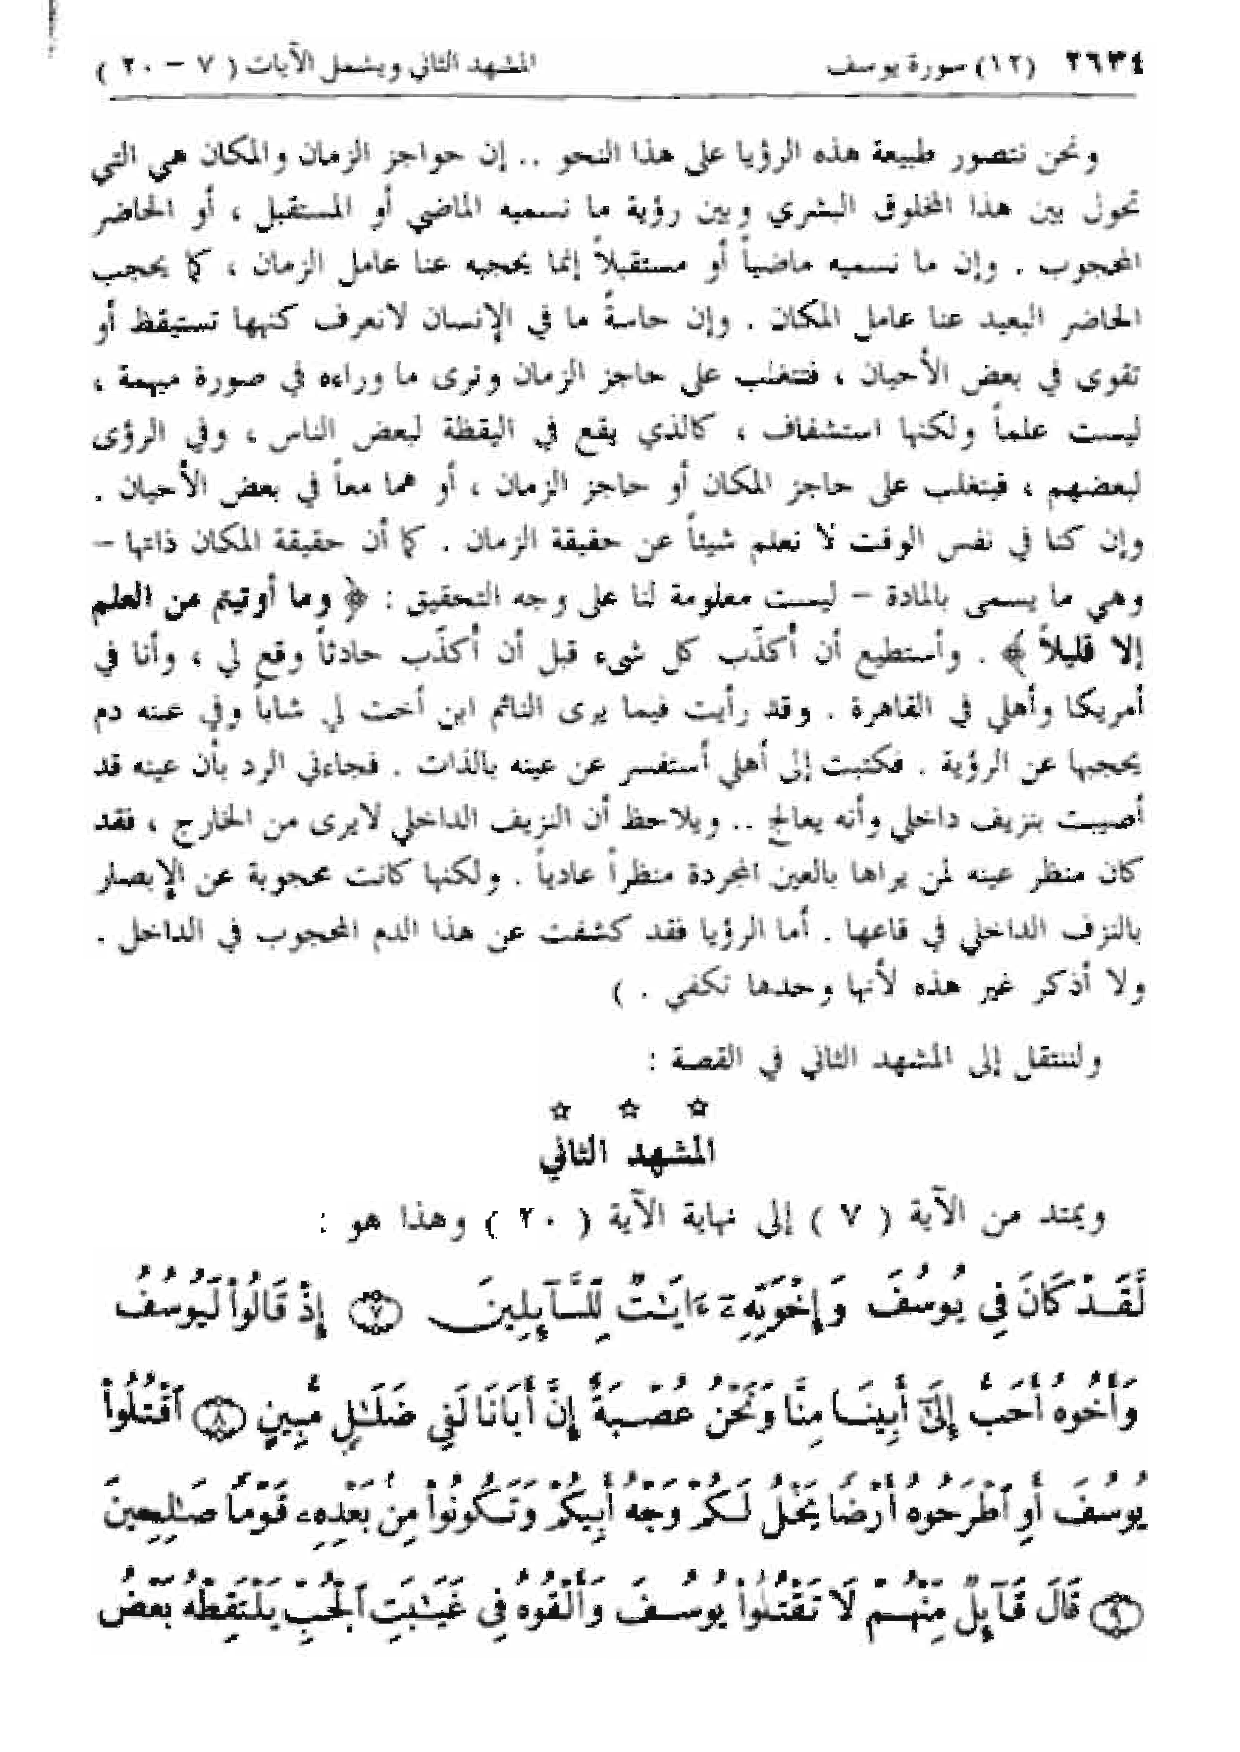 ٢٦٣٤ (١٢) سورة يوسف المشهد الثاني ويشمل الآيات ( ٧ – ٢٠ )
ونحن نتصور طبيعة هذه الرؤيا على هذا النحو .. إن حواجز الزمان والمكان هي التي
تحول بين هذا المخلوق البشري وبين رؤية ما نسميه الماضي أو المستقبل ، أو الحاضر
المحجوب . وإن ما نسميه ماضياً أو مستقبلاً إنما يحجبه عنا عامل الزمان ، كما يحجب
الحاضر البعيد عنا عامل المكان . وإن حاسةً ما في الإنسان لانعرف كنهها تستيقظ أو
تقوى في بعض الأحيان ، فتتغلب على حاجز الزمان وترى ما وراءه في صورة مبهمة ،
ليست علماً ولكنها استشفاف ، كالذي يقع في اليقظة لبعض الناس ، وفي الرؤى
لبعضهم ، فيتغلب على حاجز المكان أو حاجز الزمان ، أو هما معاً في بعض الأحيان .
وإن كنا في نفس الوقت لا نعلم شيئاً عن حقيقة الزمان . كما أن حقيقة المكان ذاتها –
وهي ما يسمى بالمادة – ليست معلومة لنا على وجه التحقيق : ﴿ وما أوتيتم من العلم
إلا قليلاً ﴾ . وأستطيع أن أكذّب كل شيء قبل أن أكذّب حادثاً وقع لي ، وأنا في
أمريكا وأهلي في القاهرة . وقد رأيت فيما يرى النائم ابن أخت لي شاباً وفي عينه دم
يحجبها عن الرؤية . فكتبت إلى أهلي أستفسر عن عينه بالذات . فجاءني الرد بأن عينه قد
أصيبت بنزيف داخلي وأنه يعالج .. ويلاحظ أن النزيف الداخلي لايرى من الخارج ، فقد
كان منظر عينه لمن يراها بالعين المجردة منظراً عادياً . ولكنها كانت محجوبة عن الإبصار
بالنزف الداخلي في قاعها . أما الرؤيا فقد كشفت عن هذا الدم المحجوب في الداخل .
ولا أذكر غير هذه لأنها وحدها تكفي . )
ولننتقل إلى المشهد الثاني في القصة :
☆ ☆ ☆
المشهد الثاني
ويمتد من الآية ( ٧ ) إلى نهاية الآية ( ٢٠ ) وهذا هو :
لَّقَدْ كَانَ فِي يُوسُفَ وَإِخْوَتِهِۦٓ ءَايَٰتٌ لِّلسَّآئِلِينَ ۝٧ إِذْ قَالُوا۟ لَيُوسُفُ
وَأَخُوهُ أَحَبُّ إِلَىٰٓ أَبِينَا مِنَّا وَنَحْنُ عُصْبَةٌ إِنَّ أَبَانَا لَفِي ضَلَٰلٍ مُّبِينٍ ۝٨ ٱقْتُلُوا۟
يُوسُفَ أَوِ ٱطْرَحُوهُ أَرْضًا يَخْلُ لَكُمْ وَجْهُ أَبِيكُمْ وَتَكُونُوا۟ مِنۢ بَعْدِهِۦ قَوْمًا صَٰلِحِينَ
۝٩ قَالَ قَآئِلٌ مِّنْهُمْ لَا تَقْتُلُوا۟ يُوسُفَ وَأَلْقُوهُ فِي غَيَٰبَتِ ٱلْجُبِّ يَلْتَقِطْهُ بَعْضُ